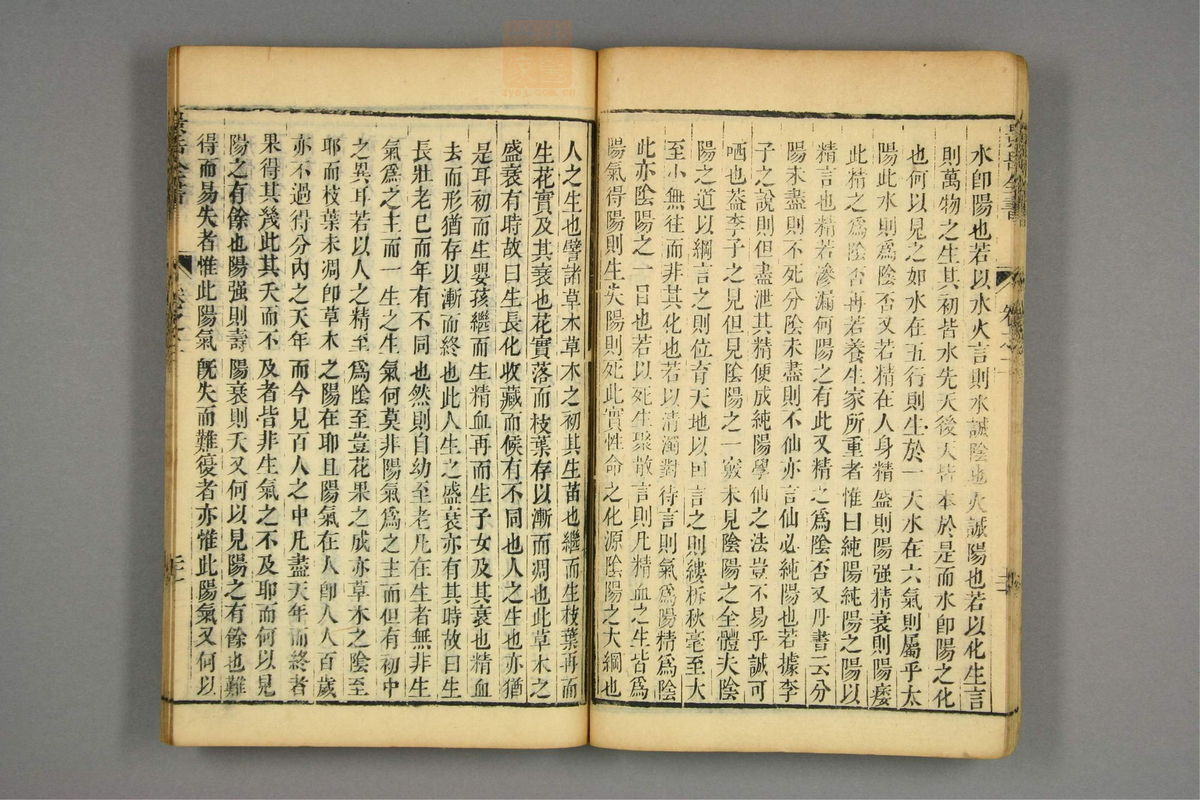 水卽陽也若以水火言則水誠陰也火誠陽也若以化生言
則萬物之生其初皆水先天後天皆本於是而水卽陽之化
也何以見之如水在五行則生於一天水在六氣則屬乎太
陽此水則爲陰否又若精在人身精盛則陽强精衰則陽痿
此精之爲陰否再若養生家所重者惟曰純陽純陽之陽以
精言也精若滲漏何陽之有此又精之爲陰否又丹書云分
陽未盡則不死分陰未盡則不仙亦言仙必純陽也若據李
子之說則但盡泄其精便成純陽學仙之法豈不易乎誠可
哂也葢李子之見但見陰陽之一竅未見陰陽之全體夫陰
陽之道以綱言之則位育天地以目言之則縷柝秋毫至大
至小無往而非其化也若以清濁對待言則氣爲陽精爲陰
此亦陰陽之一目也若以死生聚散言則凡精血之生皆爲
陽氣得陽則生失陽則死此實性命之化源陰陽之大綱也
人之生也譬諸草木草木之初其生苗也繼而生枝葉再而
生花實及其衰也花實落而枝葉存以漸而凋也此草木之
盛衰有時故曰生長化收藏而候有不同也人之生也亦猶
是耳初而生嬰孩繼而生精血再而生子女及其衰也精血
去而形猶存以漸而終也此人生之盛衰亦有其時故曰生
長壯老已而年有不同也然則自幼至老凡在生者無非生
氣爲之主而一生之生氣何莫非陽氣爲之主而但有初中
之異耳若以人之精至爲陰至豈花果之成亦草木之陰至
耶而枝葉未凋卽草木之陽在耶且陽氣在人卽人人百歲
亦不過得分內之天年而今見百人之中凡盡天年而終者
果得其幾此其夭而不及者皆非生氣之不及耶而何以見
陽之有餘也陽强則壽陽衰則夭又何以見陽之有餘也難
得而易失者惟此陽氣旣失而難復者亦惟此陽氣又何以
景岳全書